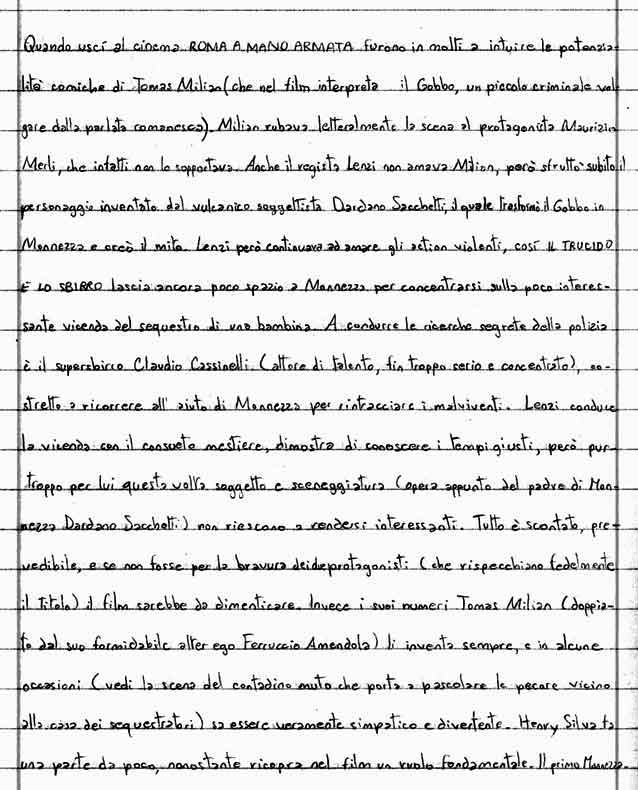 Quando uscì al cinema ROMA A MANO ARMATA furono in molti a intuire le potenzia-
lità comiche di Tomas Milian (che nel film interpreta il Gobbo, un piccolo criminale vol-
gare dalla parlata romanesca). Milian rubava letteralmente la scena al protagonista Maurizio
Merli, che infatti non lo sopportava. Anche il regista Lenzi non amava Milian, però sfruttò subito il
personaggio inventato dal vulcanico soggettista Dardano Sacchetti, il quale trasformò il Gobbo in
Monnezza e creò il mito. Lenzi però continuava ad amare gli action violenti, così IL TRUCIDO
E LO SBIRRO lascia ancora poco spazio a Monnezza per concentrarsi sulla poco interes-
sante vicenda del sequestro di una bambina. A condurre le ricerche segrete della polizia
è il supersbirro Claudio Cassinelli (attore di talento, fin troppo serio e concentrato), co-
stretto a ricorrere all'aiuto di Monnezza per rintracciare i malviventi. Lenzi conduce
la vicenda con il consueto mestiere, dimostra di conoscere i tempi giusti, però pur-
troppo per lui questa volta soggetto e sceneggiatura (opera appunto del padre di Mon-
nezza Dardano Sacchetti) non riescono a rendersi interessanti. Tutto è scontato, pre-
vedibile, e se non fosse per la bravura dei due protagonisti (che rispecchiano fedelmente
il titolo) il film sarebbe da dimenticare. Invece i suoi numeri Tomas Milian (doppia-
to dal suo formidabile alter ego Ferruccio Amendola) li inventa sempre, e in alcune
occasioni (vedi la scena del contadino muto che porta a pascolare le pecore vicino
alla casa dei sequestratori) sa essere veramente simpatico e divertente. Henry Silva fa
una parte da poco, nonostante ricopra nel film un ruolo fondamentale. Il primo Monnezza